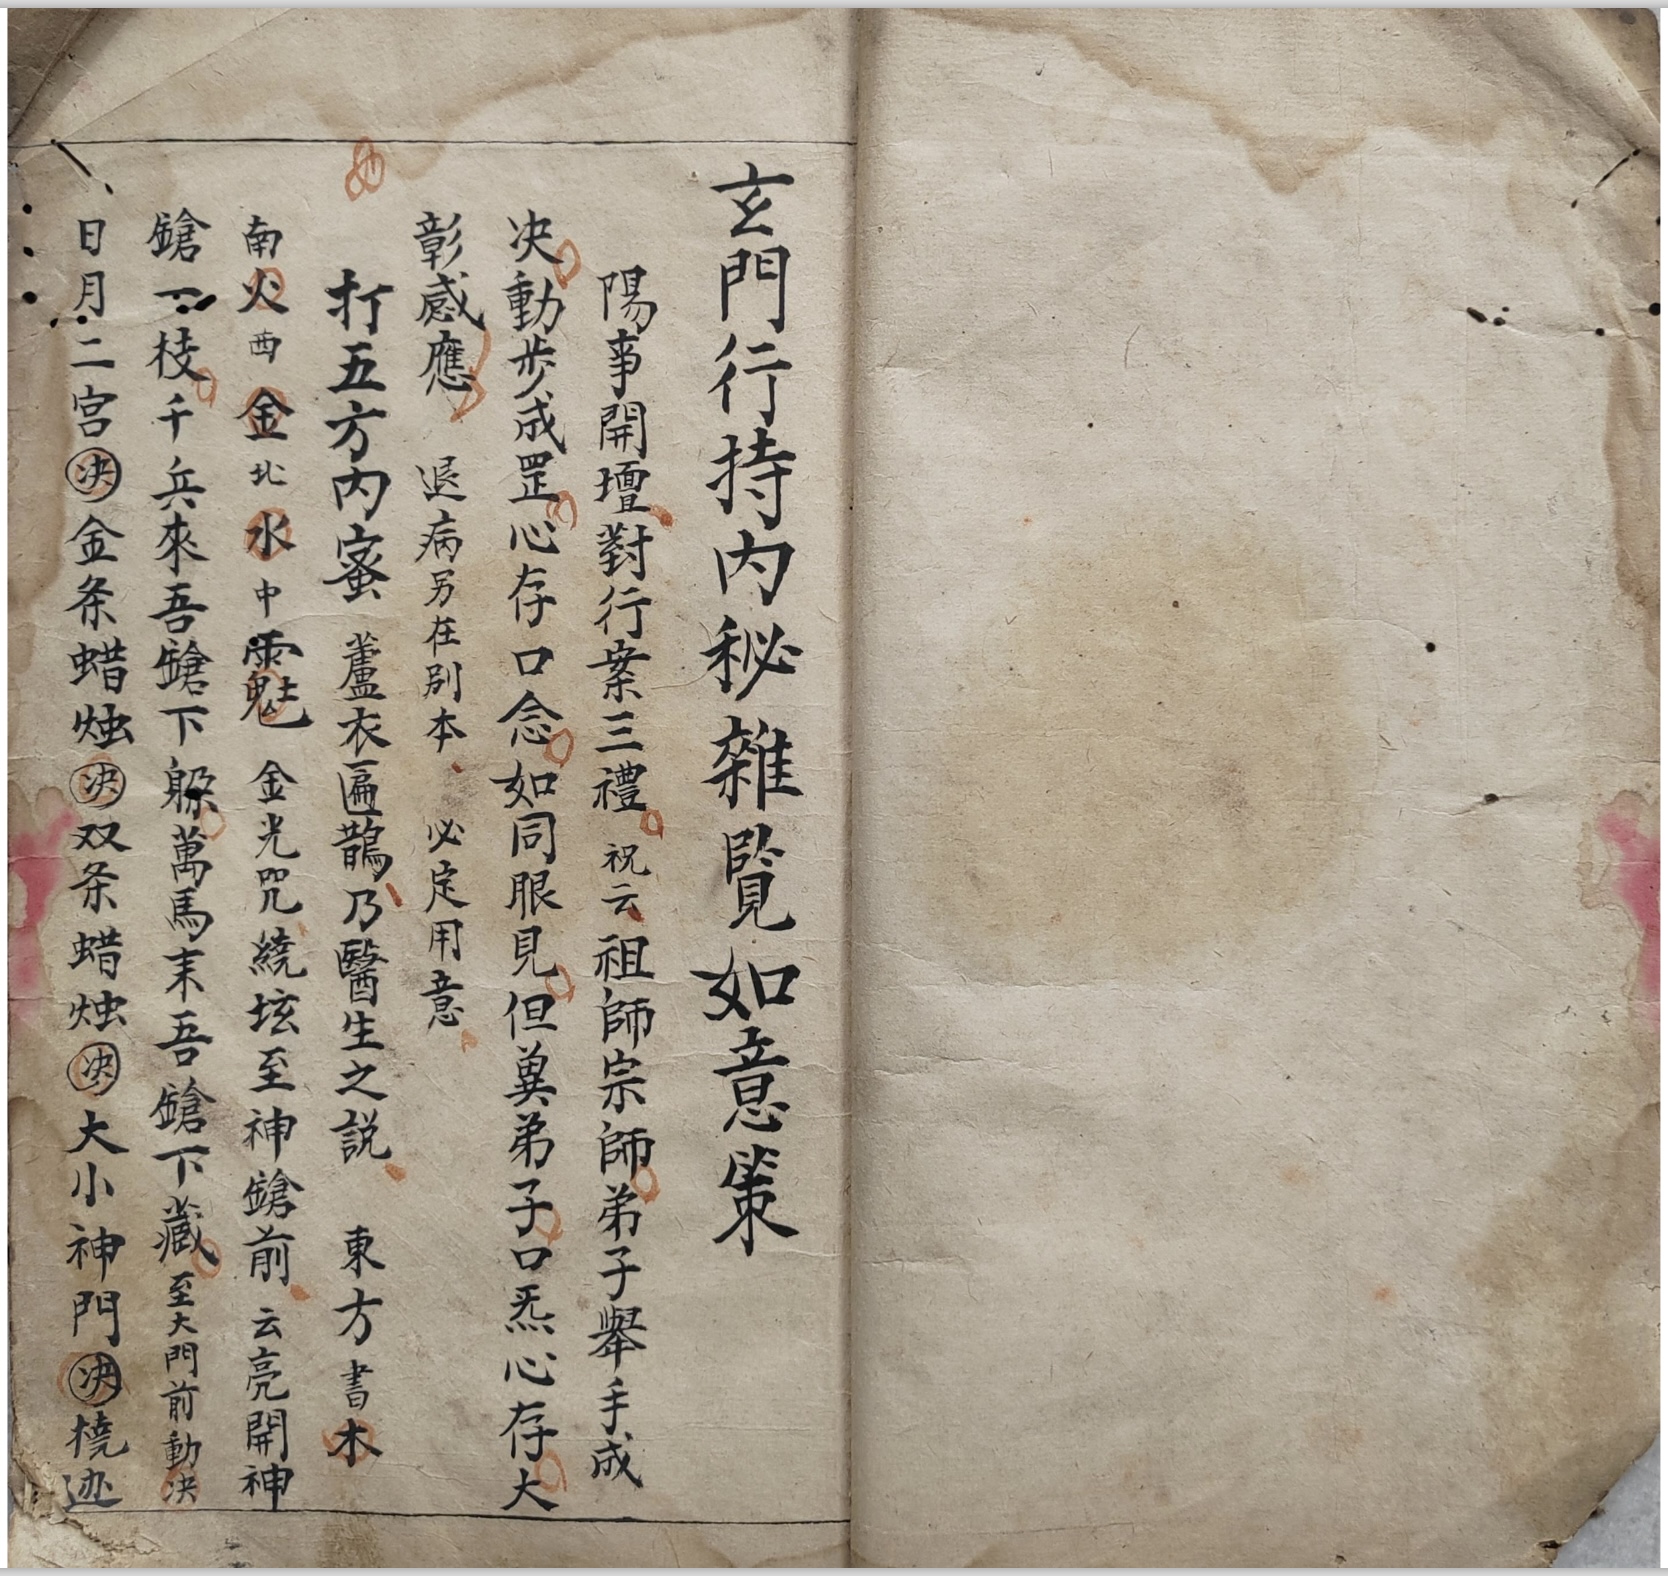 玄門行持内秘雜覽如意策
陽事開壇對行案三禮祝云祖師宗師弟子舉手成
决動步成罡心存口念如同眼見但奠弟子口炁心存大
彰感應退病另在別本必定用意
打五方内蜜蘆衣匾鵲乃醫生之説東方書木
南火西金北水中金光咒繞坛至神鎗前云亮開神
鎗一枝千兵來吾鎗下躲萬馬末吾鎗下藏至大門前動决
日月二宫决金条蜡烛决双条蜡烛决大小神門决橈